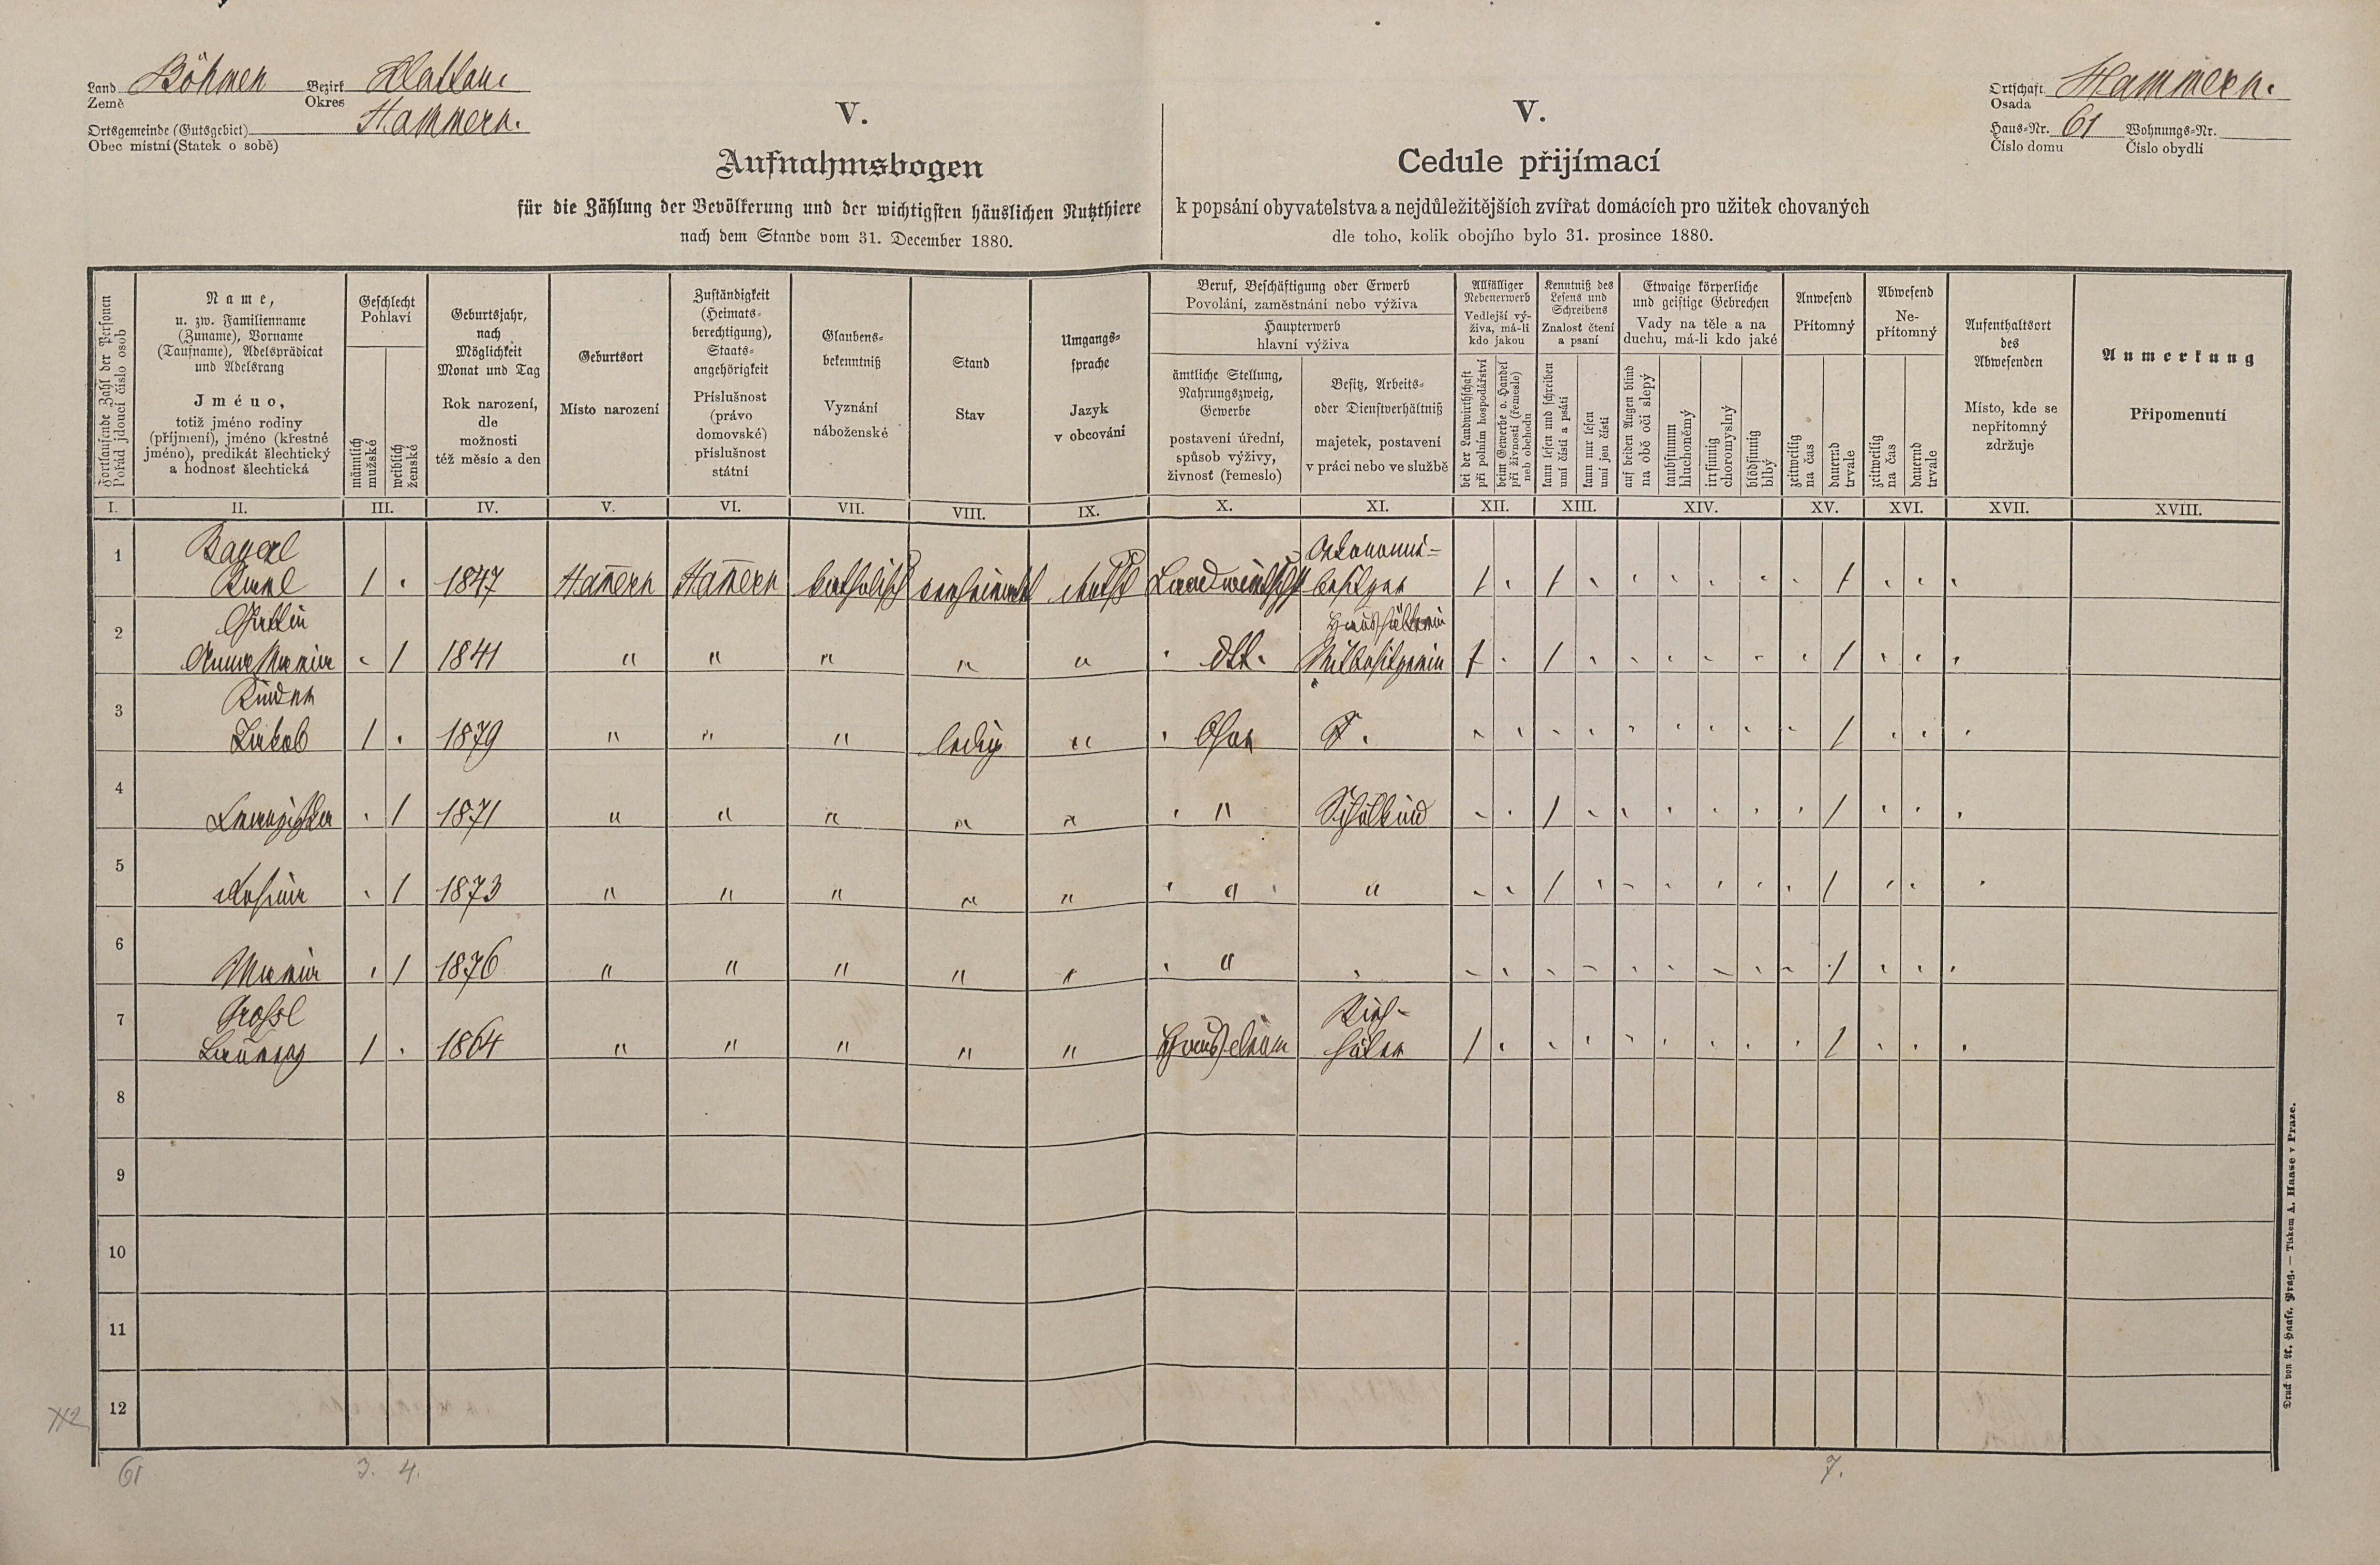 Land Böhmen Bezirk Klattau
Země Okres
Ortsgemeinde (Gutsgebiet) Hammern.
Obec místní (Statek o sobě)
V.
Aufnahmsbogen
für die Zählung der Bevölkerung und der wichtigsten häuslichen Nutzthiere
nach dem Stande vom 31. December 1880.
V.
Cedule přijímací
k popsání obyvatelstva a nejdůležitějších zvířat domácích pro užitek chovaných
dle toho, kolik obojího bylo 31. prosince 1880.
Ortschaft Hammern.
Osada
Haus-Nr. 61 Wohnungs-Nr.
Číslo domu Číslo obydlí
Fortlaufende Zahl der Personen
Pořád jdoucí číslo osob
Name,
u. zw. Familienname
(Zuname), Vorname
(Taufname), Adelsprädicat
und Adelsrang
Jméno,
totiž jméno rodiny
(příjmení), jméno (křestné
jméno), predikát šlechtický
a hodnosť šlechtická
Geschlecht
Pohlaví
männlich
mužské
weiblich
ženské
Geburtsjahr,
nach
Möglichkeit
Monat und Tag
Rok narození,
dle
možnosti
též měsíc a den
Geburtsort
Místo narození
Zuständigkeit
(Heimats-
berechtigung),
Staats-
angehörigkeit
Příslušnost
(právo
domovské)
příslušnost
státní
Glaubens-
bekenntniß
Vyznání
náboženské
Stand
Stav
Umgangs-
sprache
Jazyk
v obcování
Beruf, Beschäftigung oder Erwerb
Povolání, zaměstnání nebo výživa
Haupterwerb
hlavní výživa
ämtliche Stellung,
Nahrungszweig,
Gewerbe
postavení úřední,
spůsob výživy,
živnosť (řemeslo)
Besitz, Arbeits-
oder Dienstverhältniß
majetek, postavení
v práci nebo ve službě
Allfälliger
Nebenerwerb
Vedlejší vý-
živa, má-li
kdo jakou
bei der Landwirthschaft
při polním hospodářství
beim Gewerbe o. Handel
při živnosti (řemeslo)
neb obchodu
Kenntniß des
Lesens und
Schreibens
Znalosť čtení
a psaní
kann lesen und schreiben
umí čísti a psáti
kann nur lesen
umí jen čísti
Etwaige körperliche
und geistige Gebrechen
Vady na těle a na
duchu, má-li kdo jaké
auf beiden Augen blind
na obě oči slepý
taubstumm
hluchoněmý
irrsinnig
choromyslný
blödsinnig
blbý
Anwesend
Přítomný
zeitweilig
na čas
dauernd
trvale
Abwesend
Ne-
přítomný
zeitweilig
na čas
dauernd
trvale
Aufenthaltsort
des
Abwesenden
Místo, kde se
nepřítomný
zdržuje
Anmerkung
Připomenutí
I. II. III. IV. V. VI. VII. VIII. IX. X. XI. XII. XIII. XIV. XV. XVI. XVII. XVIII.
Bayerl Oekonomie-
1 Karl 1 1847 Ham̄ern Ham̄ern katholisch verheirathet deutsch Landwirtschft besitzer 1 1 1
Gattin Haushälterin
2 Anna Maria 1 1841 " " " " " dtt. Mitbesitzerin 1 1 1
Kinder
3 Jakob 1 1879 " " " ledig " Ohne 1
4 Franziska 1 1871 " " " " " " Schulkind 1 1
5 Rosina 1 1873 " " " " " " " 1 1
6 Maria 1 1876 " " " " " " 1
Grossl Vieh-
7 1 1864 " " " " " hüter 1 1
8
9
10
11
12
61 3. 4. 7.
Druck von A. Haase, Prag. — Tiskem A. Haase v Praze.